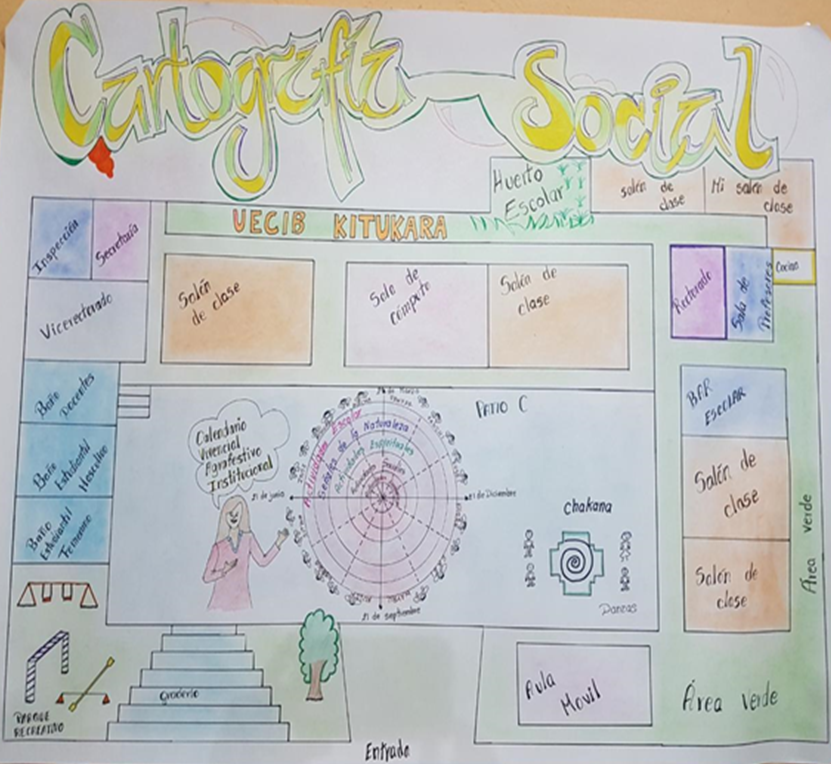 Cartografía Social
Huerto
Escolar
salón de
clase
Mi salón de
clase
UECIB KITUKARA
Inspección
Secretaría
Vicerectorado
Salón
de clase
Sala de
cómputo
Salón de
clase
Rectorado
Sala de
Profesores
Cocina
Baño
Docentes
Baño
Estudiantil
Masculino
Baño
Estudiantil
Femenino
Calendario
Vivencial
Agrofestivo
Institucional
Actividades Escolar
de la Naturaleza
Actividades Espirituales
21 de junio
21 de Diciembre
21 de septiembre
PATIO C
Chakana
Danzas
BAR
ESCOLAR
Salón de
clase
Salón de
clase
Área verde
PARQUE
RECREATIVO
Graderío
Aula
Movil
Área verde
Entrada